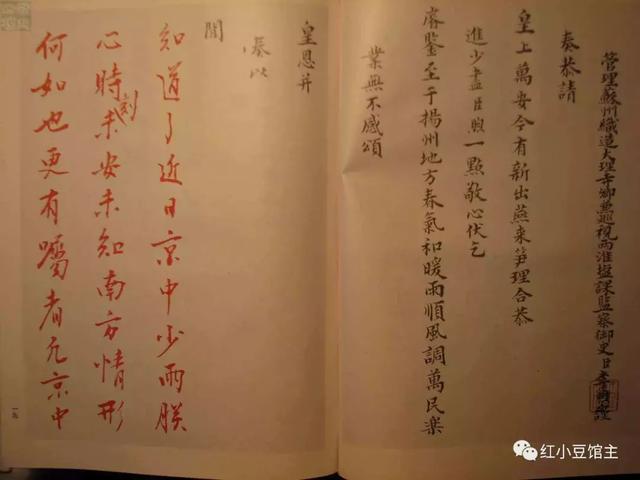 管理蘇州織造大理寺卿兼巡視兩淮鹽課監察御史臣李煦謹
奏恭請
皇上萬安今有新出燕來笋理合恭
進少盡臣煦一點敬心伏乞
睿鑒至于揚州地方春氣和暖雨順風調萬民樂
業無不感頌
皇恩并
奏以
聞
知道了近日京中少雨朕
心時刻未安未知南方情形
何如也更有囑者凡京中
一九
红小豆馆主